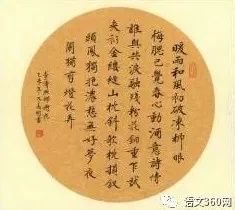 暖雨和風初破凍柳眼
梅腮已覺春心動酒意詩情
誰與共淚融殘粉花鈿重乍試
夾衫金縷縫山枕斜欹枕損釵
頭鳳獨抱濃愁無好夢夜
闌猶剪燈花弄
李清照蝶戀花
语文360网